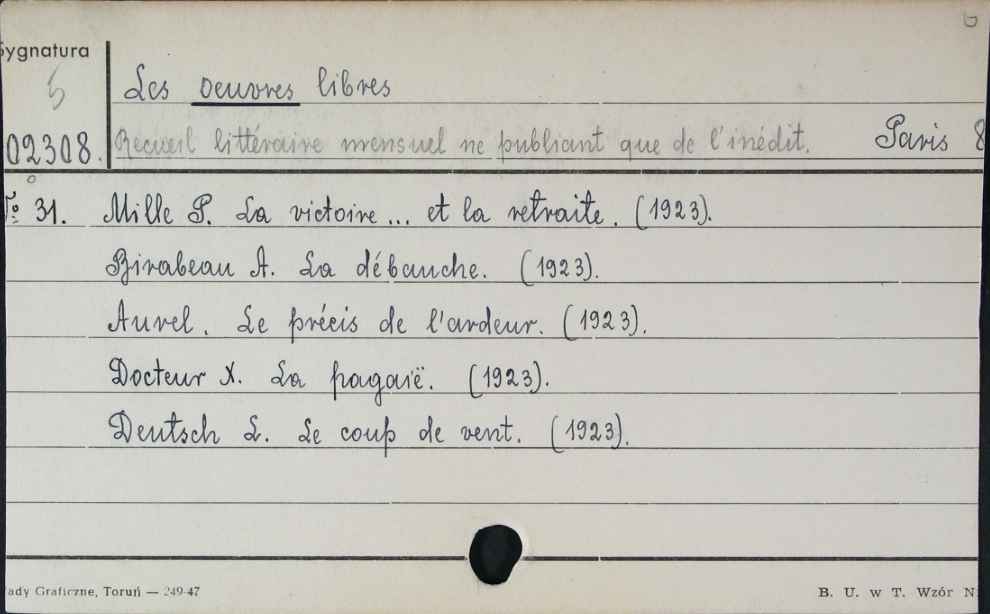 Sygnatura
Les oeuvres libres
02308. Recueil littéraire mensuel ne publiant que de l'inédit. Paris 8
To 31. Mille P. La victoire ... et la retraite. (1923).
Birabeau A. La débauche. (1923).
Aurel. Le précis de l'ardeur. (1923).
Docteur X. La pagaïë. (1923).
Deutsch L. Le coup de vent. (1923).
ady Graficzne, Toruń — 249-47
B. U. w T. Wzór N